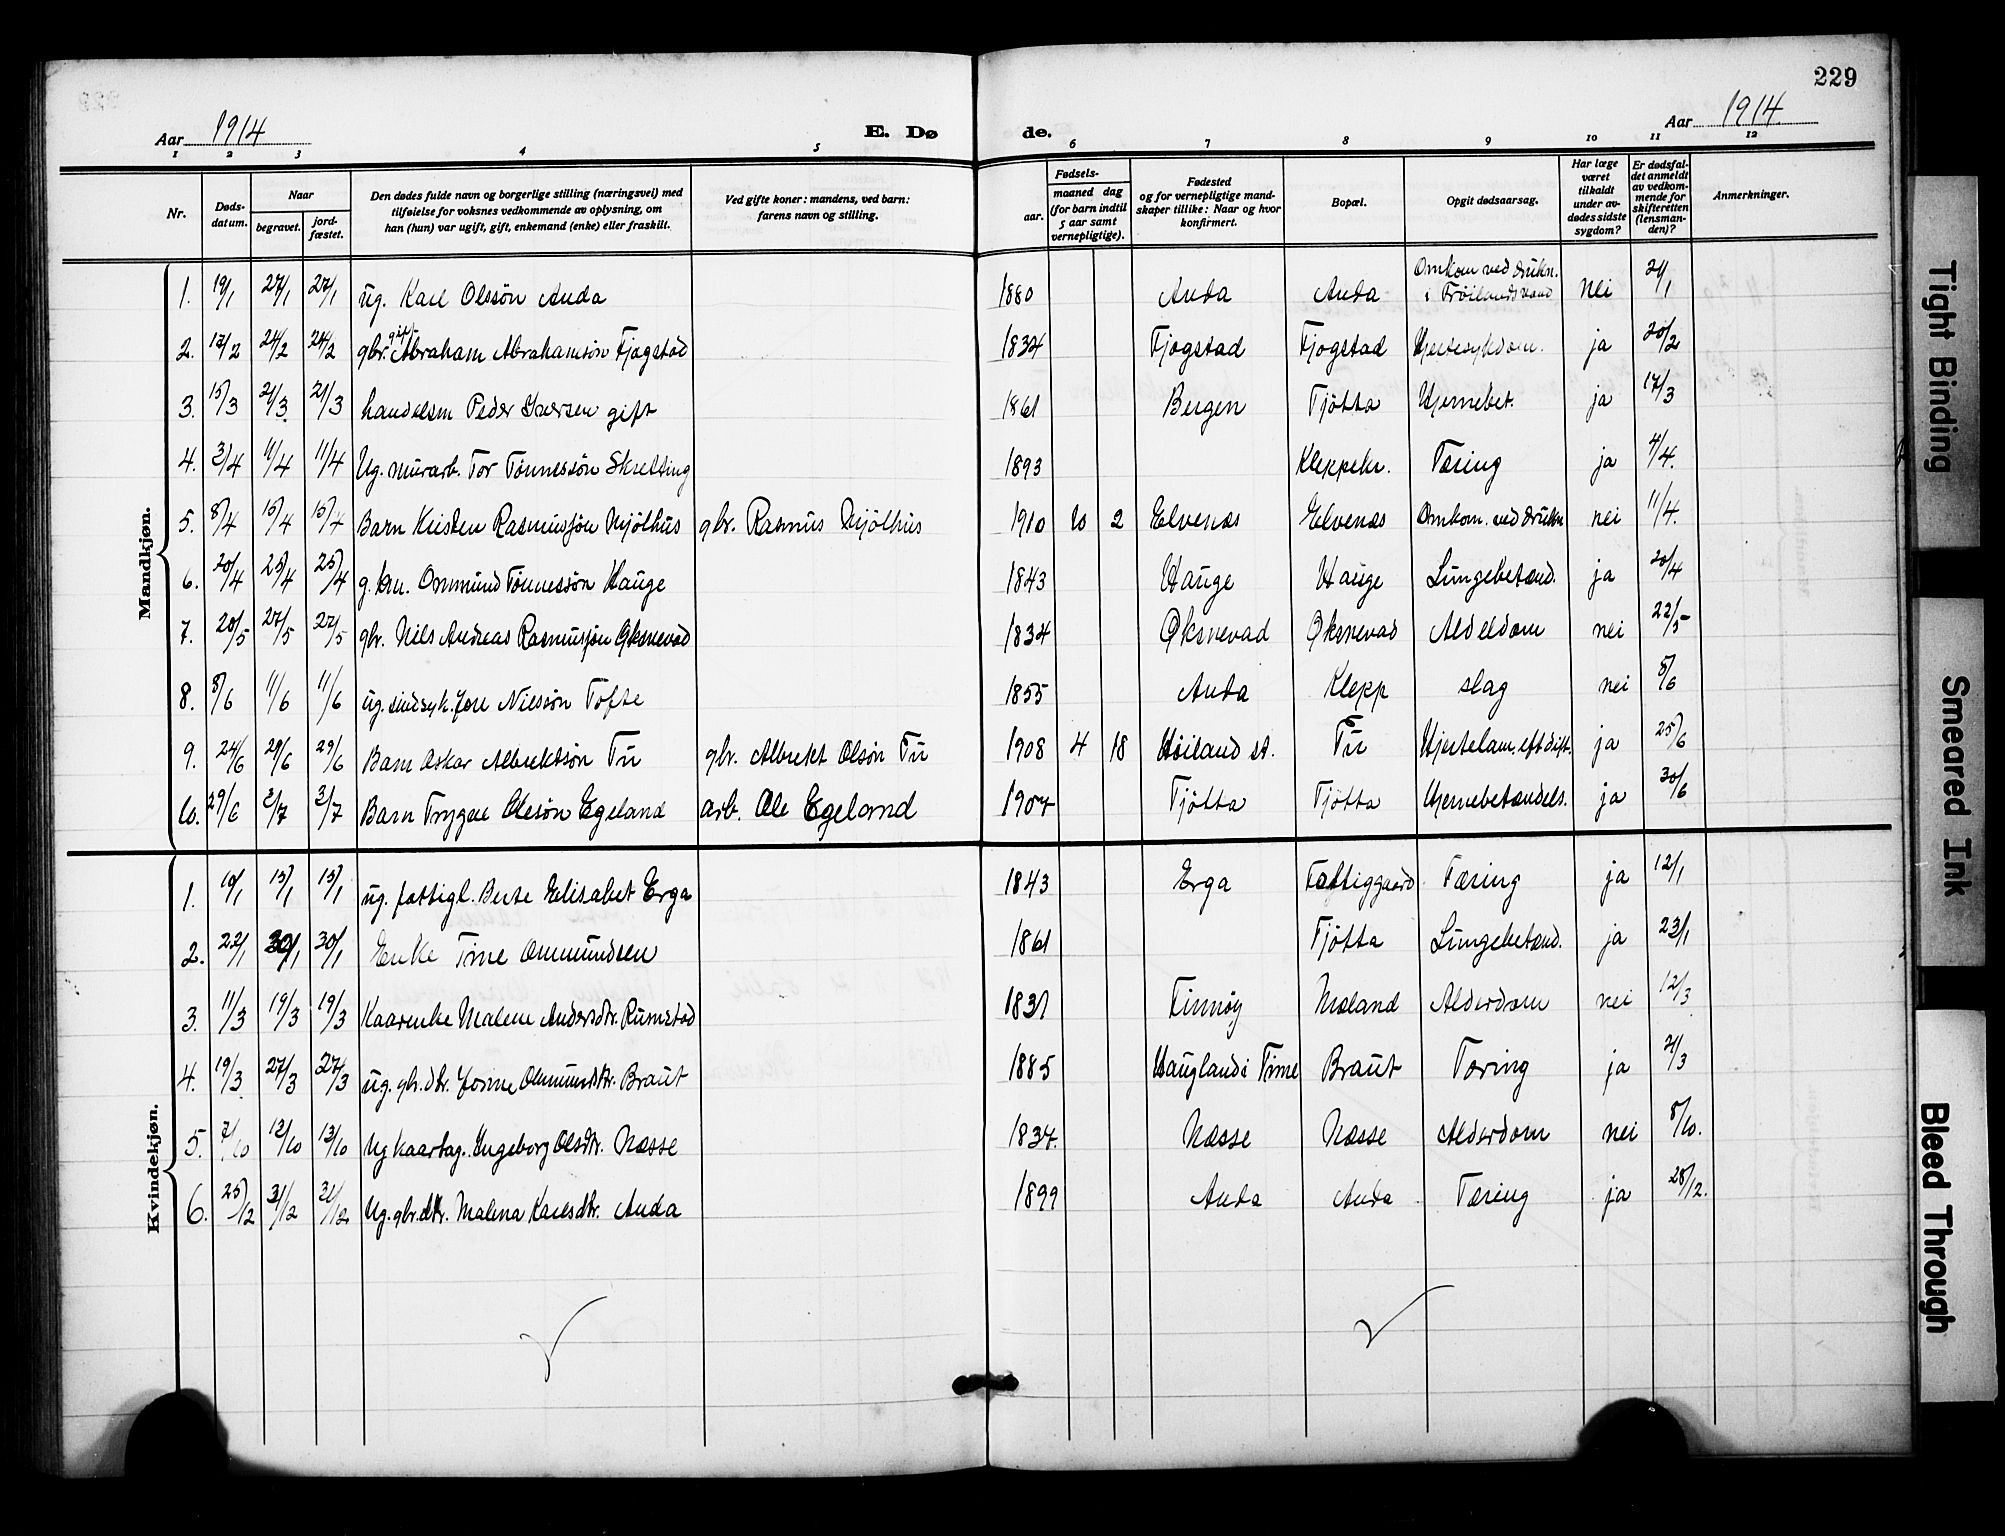 229
Aar 1914 E. Døde. Aar 1914.
1 2 3 4 5 6 7 8 9 10 11 12
Nr. Døds-datum. Naar begravet. jord-fæstet. Den dødes fulde navn og borgerlige stilling (næringsvei) med tilføielse for voksnes vedkommende av oplysning, om han (hun) var ugift, gift, enkemand (enke) eller fraskilt. Ved gifte koner: mandens, ved barn: farens navn og stilling. Fødsels- aar. maaned dag (for barn indtil 5 aar samt vernepligtige). Fødested og for vernepligtige mand-skaper tillike: Naar og hvor konfirmert. Bopæl. Opgit dødsaarsag. Har læge været tilkaldt under av-dødes sidste sygdom? Er dødsfal-det anmeldt av vedkom-mende for skifteretten (lensman-den)? Anmerkninger.
Mandkjøn.
1. 19/1 27/1 27/1 ug. Karl Olssøn Anda 1880 Anda Anda Omkom ved drukn. i Frøilandsvand nei 21/1
2. 17/2 24/2 24/2 gbr. gift Abraham Abrahamsøn Fjogstad 1834 Fjogstad Fjogstad Hjertesykdom. ja 20/2
3. 15/3 21/3 21/3 handelsm Peder Iversen gift 1861 Bergen Tjøtta Hjernebet. ja 17/3
4. 3/4 11/4 11/4 Ug. murarb. Tor Tønnessøn Skretting 1893 Kleppekr. Tæring ja 4/4.
5. 8/4 15/4 15/4 Barn Kristen Rasmussøn Njølhus gbr. Rasmus Njølhus 1910 10 2 Elvenæs Elvenæs Omkom. ved drukn nei 11/4.
6. 20/4 25/4 25/4 g. km. Ommund Tønnessøn Hauge 1843 Hauge Hauge Lungebetænd. ja 20/4
7. 20/5 27/5 27/5 gbr. Nils Andreas Rasmussøn Øksnevad 1834 Øksnevad Øksnevad Alderdom nei 22/5
8. 8/6 11/6 11/6 ug. sindsyk. Jone Nilssøn Tofte 1855 Anda Klepp slag nei 8/6
9. 24/6 29/6 29/6 Barn Askar Albrektsøn Tu gbr. Albrekt Olsøn Tu 1908 4 18 Høiland st. Tu Hjertelam. eft dift. ja 25/6
10. 29/6 3/7 3/7 Barn Trygve Olesøn Egeland arb. Ole Egeland 1904 Tjøtta Tjøtta Hjernebetændels. ja 30/6
Kvindekjøn.
1. 10/1 15/1 15/1 ug. fattigl. Berte Elisabet Erga 1843 Erga Fattiggaard Tæring ja 12/1
2. 22/1 30/1 30/1 Enke Trine Ommundsen 1861 Tjøtta Lungebetænd. ja 23/1
3. 11/3 19/3 19/3 Kaarenke Malene Andersdtr. Rumstad 1831 Finnøy Mæland Alderdom nei 12/3
4. 19/3 27/3 27/3 ug. gbr.dtr. Jorine Ommundsdtr. Braut 1885 Haugland i Time Braut Tæring ja 21/3
5. 7/10 13/10 13/10 Ug kaartag. Ingeborg Olsdtr. Næsse 1834. Næsse Næsse Alderdom nei 8/10.
6. 25/12 31/12 31/12 Ug. gbr.dtr. Malena Karlsdtr. Anda 1899 Anda Anda Tæring ja 28/12.
Tight Binding
Smeared Ink
Bleed Through